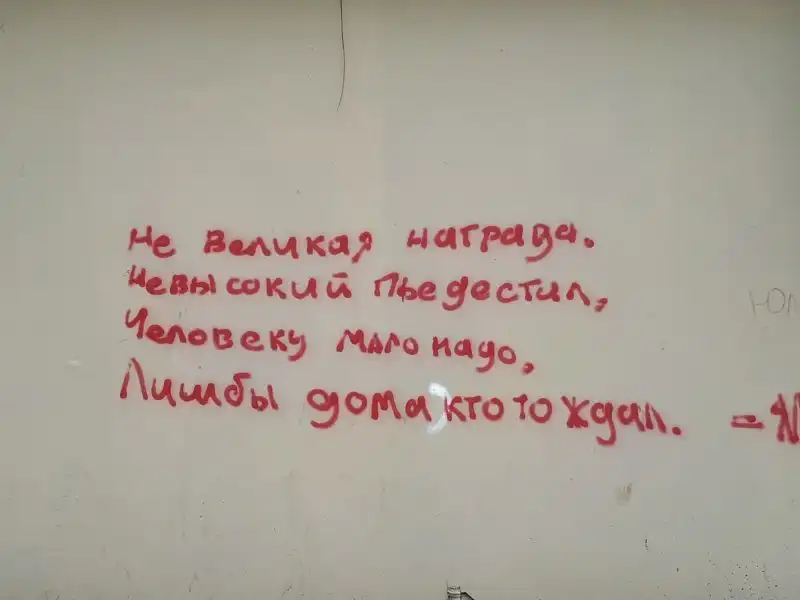 Не великая награда.
Невысокий пьедестал,
Человеку мало надо,
Лишбы дома кто то ждал.